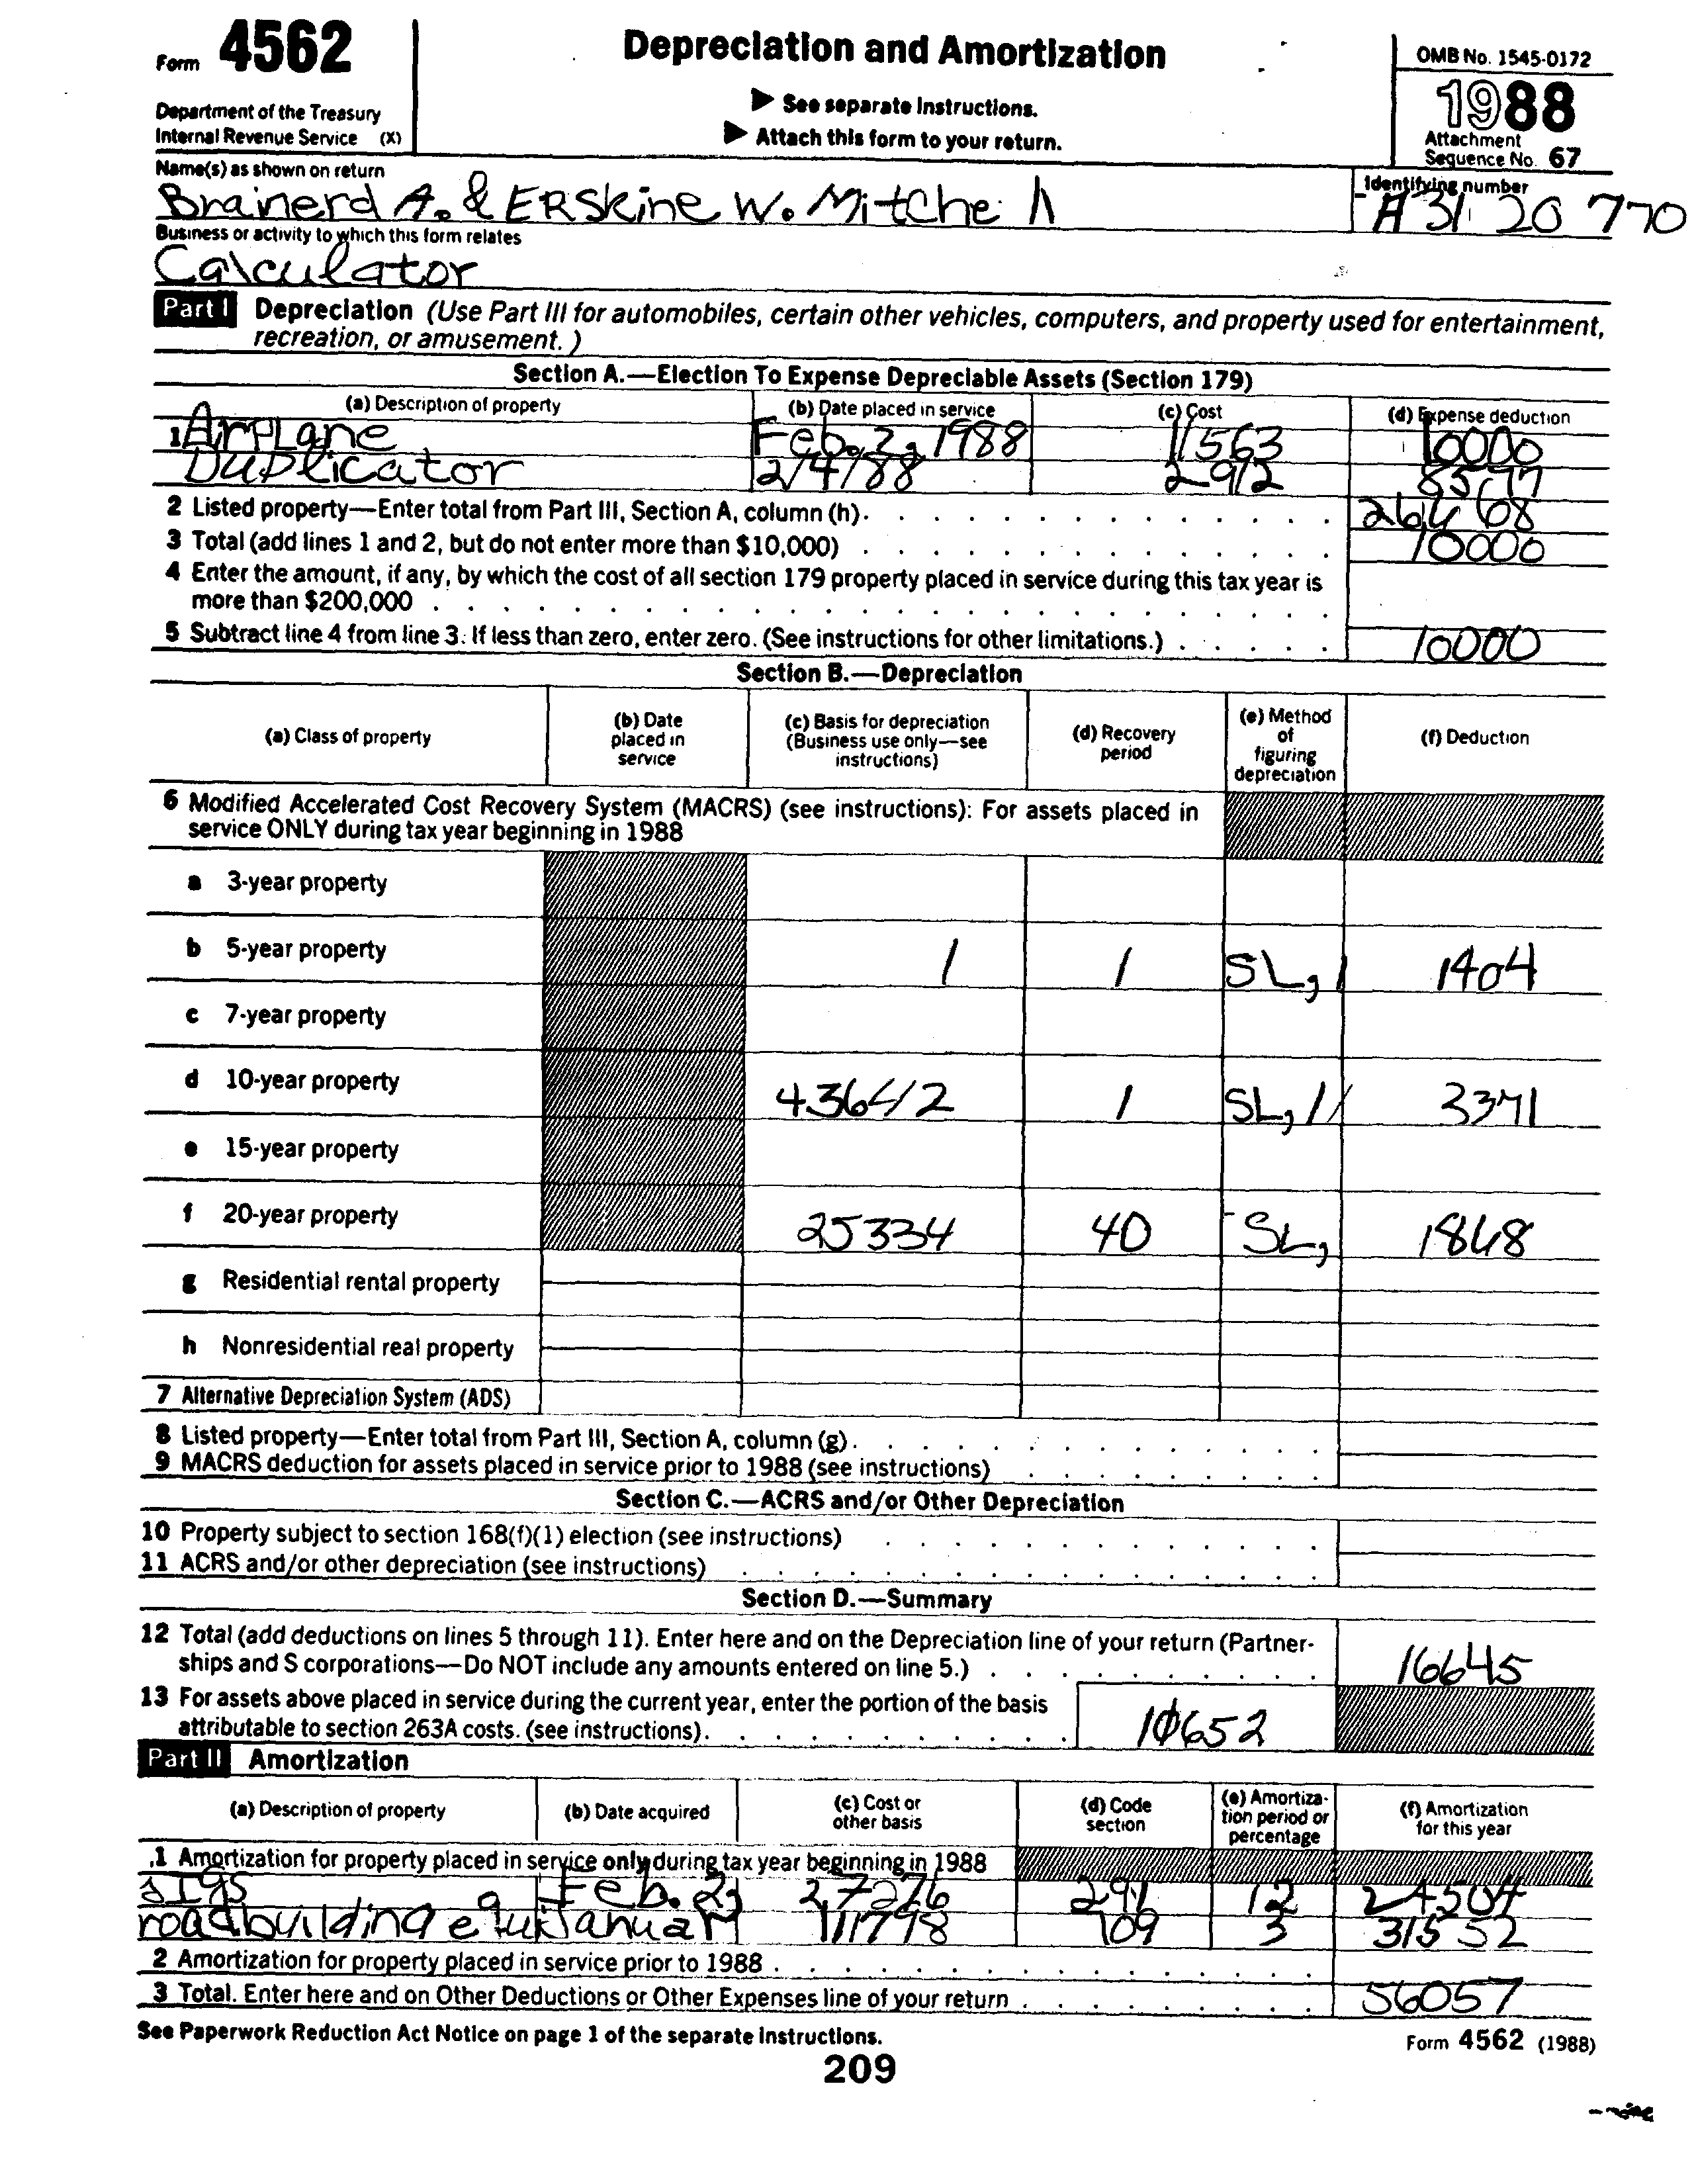 Form 4562
Department of the Treasury
Internal Revenue Service (X)
Depreciation and Amortization
▶ See separate Instructions.
▶ Attach this form to your return.
OMB No. 1545-0172
1988
Attachment
Sequence No. 67
Name(s) as shown on return
Brainerd A. & ERSkine W. Mitchell
Identifying number
A 31 20 770
Business or activity to which this form relates
Calculator
Part I Depreciation (Use Part III for automobiles, certain other vehicles, computers, and property used for entertainment,
recreation, or amusement.)
Section A.—Election To Expense Depreciable Assets (Section 179)
(a) Description of property (b) Date placed in service (c) Cost (d) Expense deduction
1 AirPLane Feb. 2, 1988 11563 10000
Duplicator 2/4/88 2912
2 Listed property—Enter total from Part III, Section A, column (h).
3 Total (add lines 1 and 2, but do not enter more than $10,000) 10000
4 Enter the amount, if any, by which the cost of all section 179 property placed in service during this tax year is
more than $200,000
5 Subtract line 4 from line 3. If less than zero, enter zero. (See instructions for other limitations.) 10000
Section B.—Depreciation
(a) Class of property
(b) Date
placed in
service
(c) Basis for depreciation
(Business use only—see
instructions)
(d) Recovery
period
(e) Method
of
figuring
depreciation
(f) Deduction
6 Modified Accelerated Cost Recovery System (MACRS) (see instructions): For assets placed in
service ONLY during tax year beginning in 1988
a 3-year property
b 5-year property 1 1 SL, 1 1404
c 7-year property
d 10-year property 43642 1 SL, 11 3371
e 15-year property
f 20-year property 25334 40 SL, 1868
g Residential rental property
h Nonresidential real property
7 Alternative Depreciation System (ADS)
8 Listed property—Enter total from Part III, Section A, column (g).
9 MACRS deduction for assets placed in service prior to 1988 (see instructions)
Section C.—ACRS and/or Other Depreciation
10 Property subject to section 168(f)(1) election (see instructions)
11 ACRS and/or other depreciation (see instructions)
Section D.—Summary
12 Total (add deductions on lines 5 through 11). Enter here and on the Depreciation line of your return (Partner-
ships and S corporations—Do NOT include any amounts entered on line 5.) 16645
13 For assets above placed in service during the current year, enter the portion of the basis
attributable to section 263A costs. (see instructions). 10652
Part II Amortization
(a) Description of property
(b) Date acquired
(c) Cost or
other basis
(d) Code
section
(e) Amortiza-
tion period or
percentage
(f) Amortization
for this year
1 Amortization for property placed in service only during tax year beginning in 1988
Feb. 2, 27276 291 12 24504
roadbuilding equi Januar 111798 109 3 31552
2 Amortization for property placed in service prior to 1988
3 Total. Enter here and on Other Deductions or Other Expenses line of your return 56057
See Paperwork Reduction Act Notice on page 1 of the separate Instructions.
Form 4562 (1988)
209